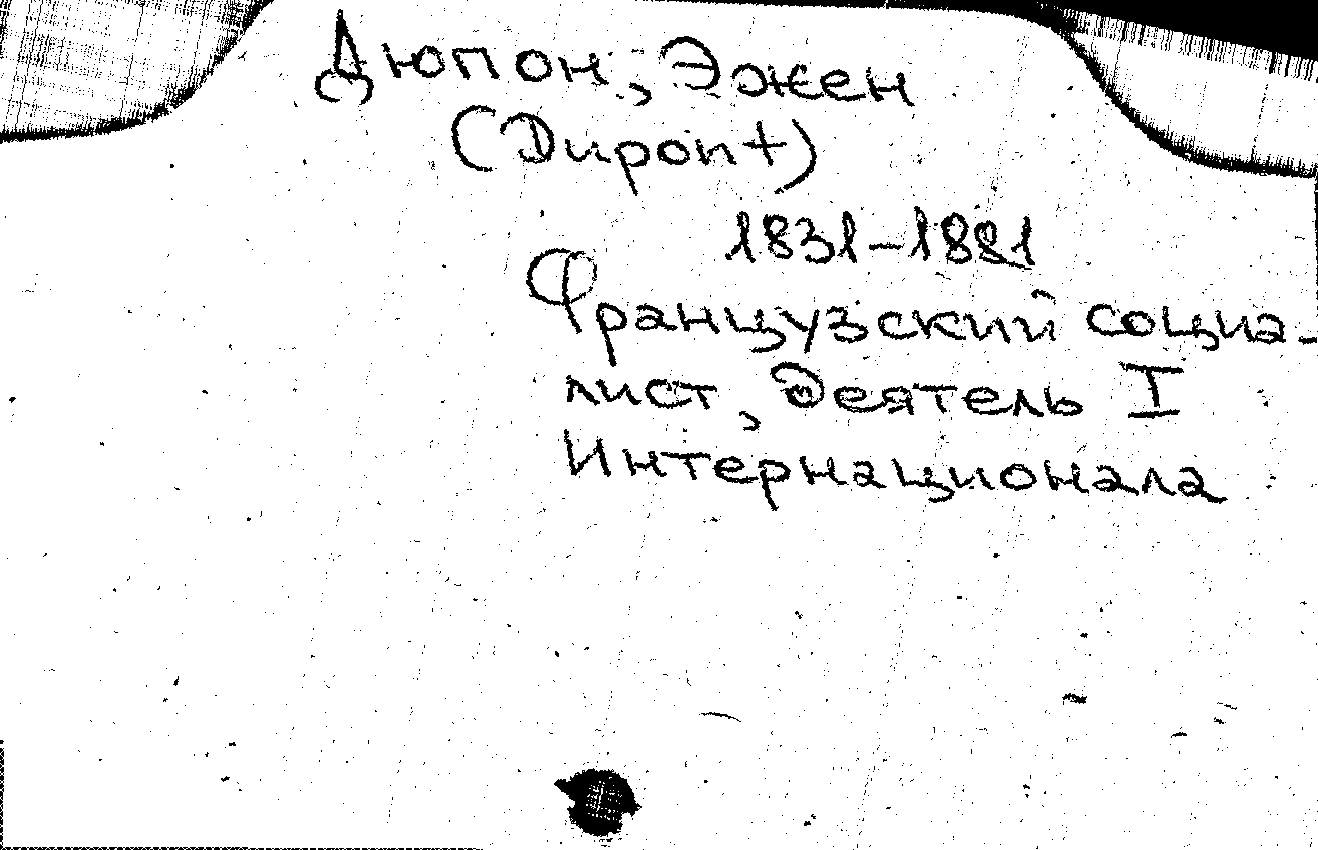 Дюпон, Эжен
(Dupont)
1831–1881
Французский социа-
лист, деятель I
Интернационала